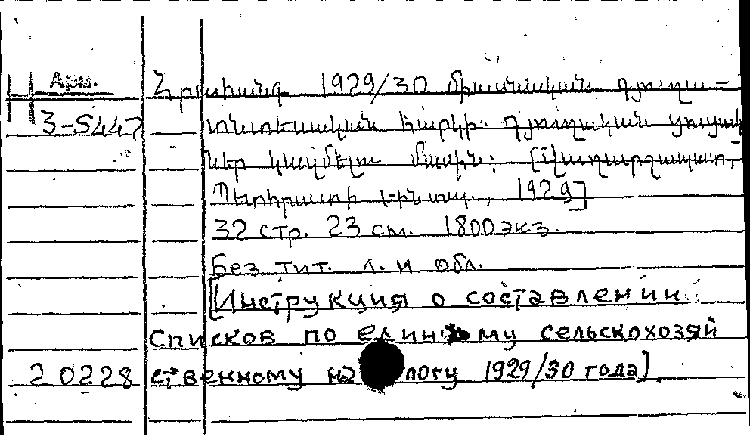 Арм.
Հրահանգ 1929/30 միասնական գյուղա-
3-5447 տնտեսական հարկի գյուղական ցուցակ
ներ կազմելու մասին: [Վաղարշապատ,
Պետհրատի տպ., 1929]
32 стр. 23 см. 1800 экз.
Без тит. л. и обл.
[Инструкция о составлении
списков по единому сельскохозяй
20228 ственному налогу 1929/30 года]